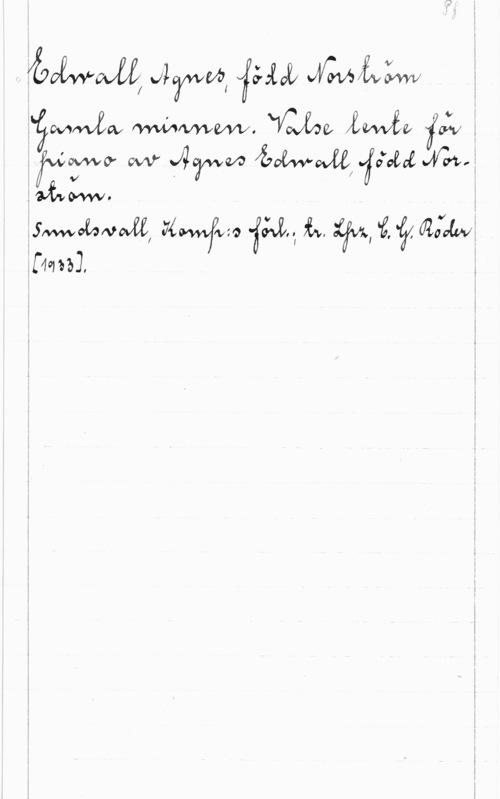 Pf
Edwall, Agnes, född Norström
Gamla minnen. Valse lente för
piano av Agnes Edwall, född Nor-
ström.
Sundsvall, Komp:s förl.; tr. Lpz, C. G. Röder
[1933].